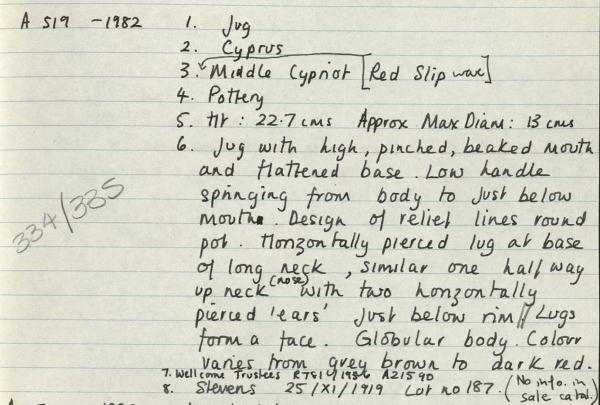 A 519 - 1982
1. Jug
2. Cyprus
3. Middle Cypriot [Red Slip ware]
4. Pottery
5. Ht : 22.7 cms Approx Max Diam : 13 cms
6. Jug with high, pinched, beaked mouth
and flattened base. Low handle
springing from body to just below
mouth. Design of relief lines round
pot. Horizontally pierced lug at base
of long neck, similar one half way
up neck (nose) with two horizontally
pierced 'ears' just below rim // Lugs
form a face. Globular body. Colour
varies from grey brown to dark red.
7. Wellcome Trustees R751/1936 A21590
8. Stevens 25/XI/1919 Lot no 187. (No info. in
sale catal.)
334/335